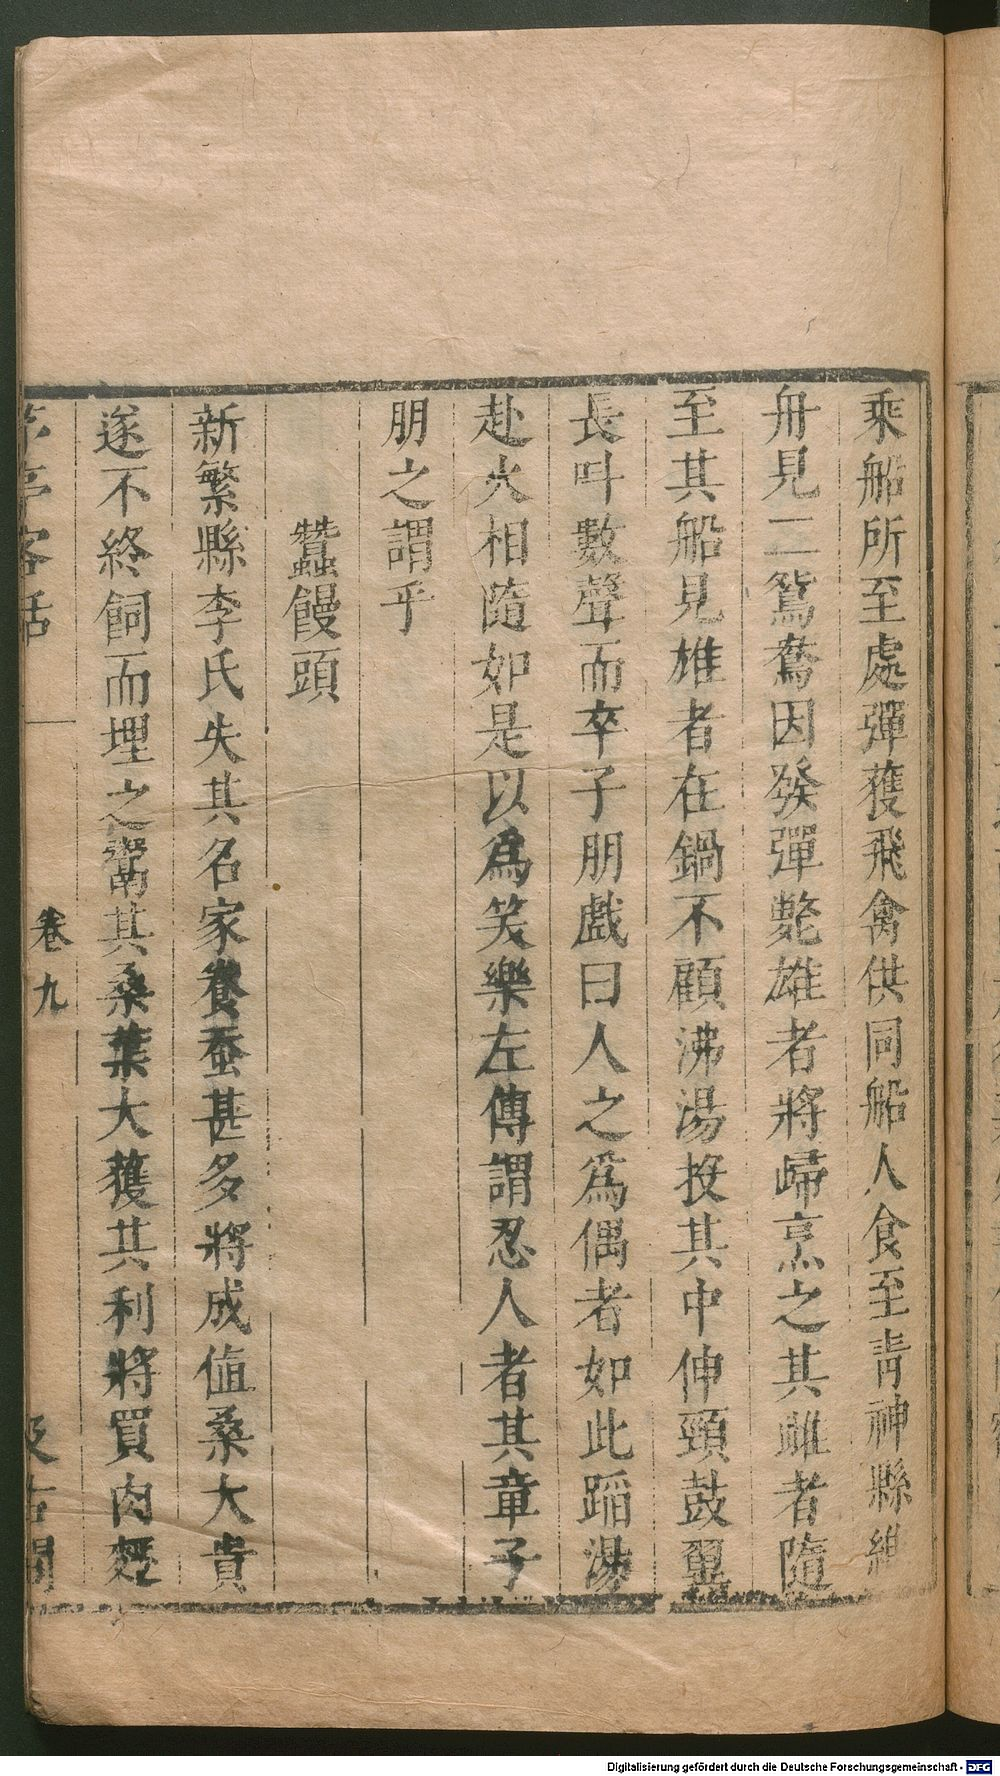 乘船所至處彈獲飛禽供同船人食至青神縣維
舟見二鴛鴦因發彈斃雄者將歸烹之其雌者隨
至其船見雄者在鍋不顧沸湯投其中伸頸鼓翼
長叫數聲而卒子朋戲曰人之爲偶者如此蹈湯
赴火相隨如是以爲笑樂左傳謂忍人者其章子
朋之謂乎
蠶饅頭
新繁縣李氏失其名家養蚕甚多將成值桑大貴
遂不終飼而埋之鬻其桑葉大獲其利將買肉麪
茅亭客話
卷九
汲古閣
Digitalisierung gefördert durch die Deutsche Forschungsgemeinschaft - DFG